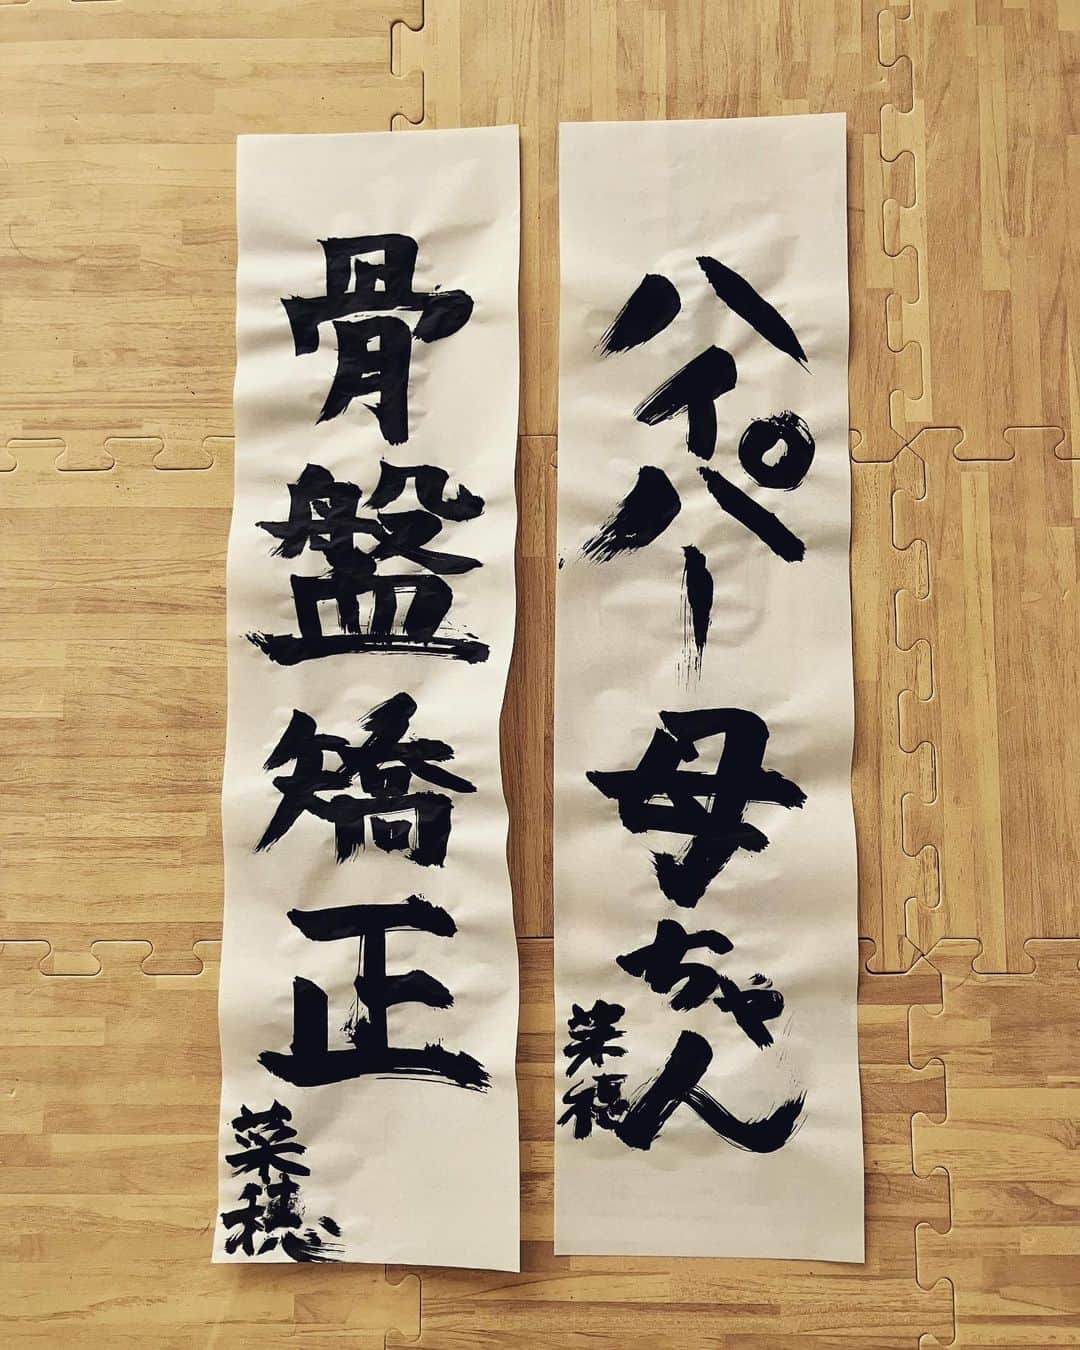 ハイパー母ちゃん
菜穂
骨盤矯正
菜穂